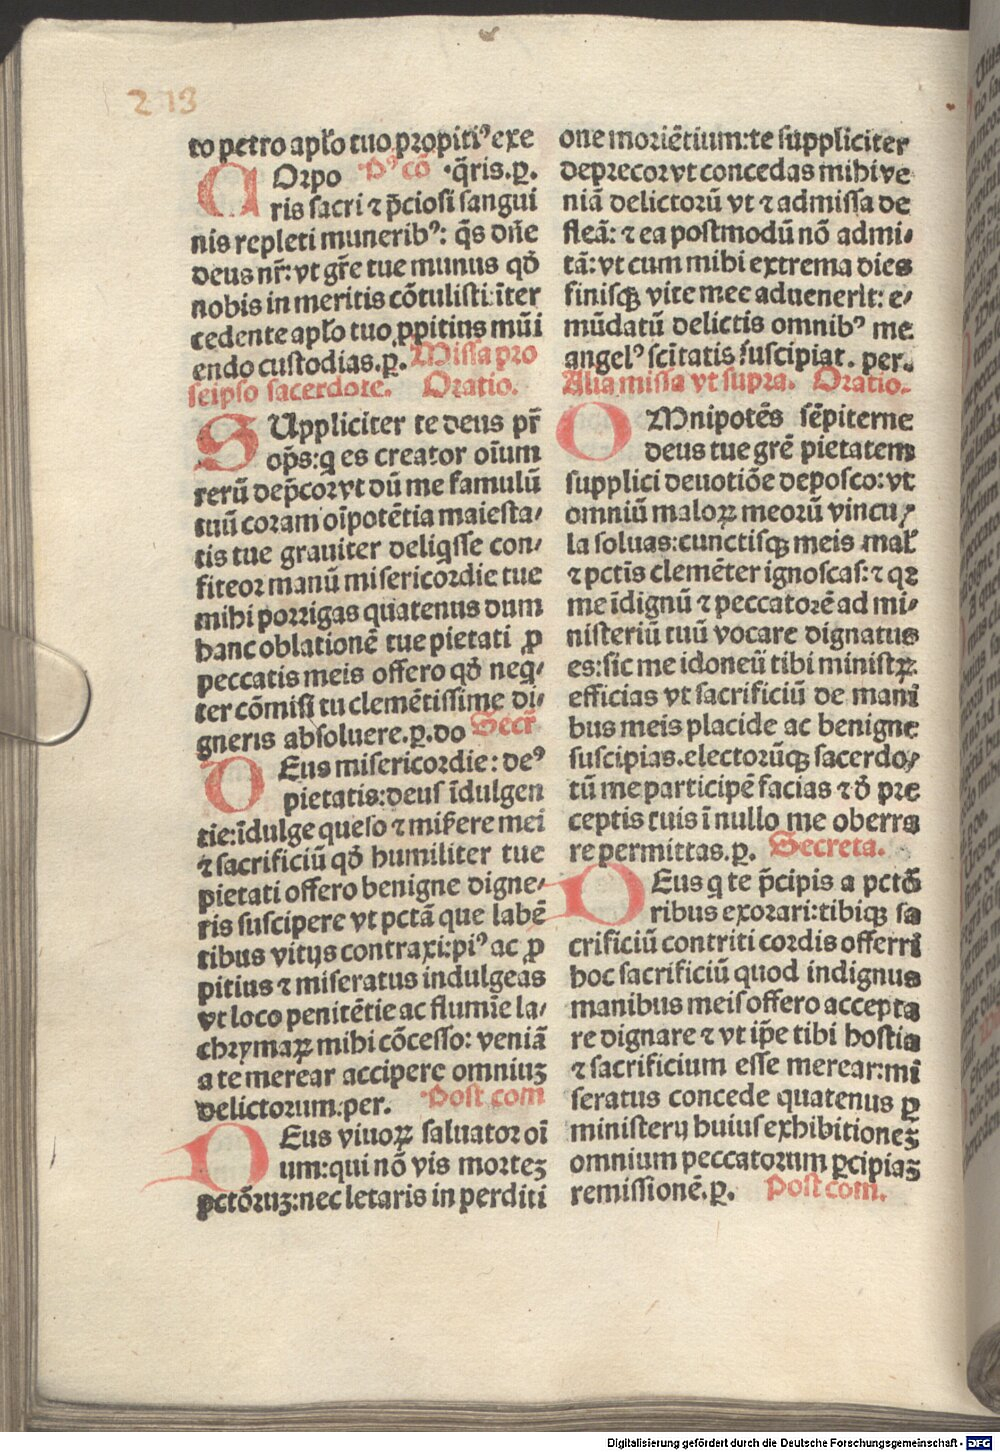 213
to petro apl'o tuo propiti⁹ exe
COrpo P⁹ cō ·q̄ris.p̱.
ris sacri ⁊ p̄ciosi sangui
nis repleti munerib⁹: q̄s dn̄e
deus nr̄: vt gr̄e tue munus qđ
nobis in meritis cōtulisti: īter
cedente apl'o tuo ꝓpitius mūi
endo custodias.p̱. Missa pro
seipso sacerdote. Oratio.
SUppliciter te deus pr̄
op̄s: q es creator oīum
rerū dep̄cor vt dū me famulū
tuū coram oīpotētia maiesta⸗
tis tue grauiter deliq̄sse con⸗
fiteor manū misericordie tue
mihi porrigas quatenus dum
hanc oblationē tue pietati ꝓ
peccatis meis offero qđ neq̄⸗
ter cōmisi tu clemētissime di⸗
gneris absoluere.p̱.do Secr̄
DEus misericordie: de⁹
pietatis: deus īdulgen
tie: īdulge queso ⁊ mis̄ere mei
⁊ sacrificiū qđ humiliter tue
pietati offero benigne digne⸗
ris suscipere vt pctā que labē
tibus vitijs contraxi: pi⁹ ac ꝓ
pitius ⁊ miseratus indulgeas
vt loco penitētie ac flumīe la⸗
chrymaꝝ mihi cōcesso: veniā
a te merear accipere omniuꝫ
delictorum.per. Post com
DEus viuoꝝ saluator oī
um: qui nō vis morteꝫ
pctōruꝫ: nec letaris in perditi
one moriētium: te suppliciter
deprecor vt concedas mihi ve
niā delictorū vt ⁊ admissa de
fleā: ⁊ ea postmodū nō admi⸗
tā: vt cum mihi extrema dies
finisqꝫ vite mee aduenerit: e⸗
mūdatū delictis omnib⁹ me
angel⁹ scītatis suscipiat. per.
Alia missa vt supra. Oratio.
OMnipotēs sēpiterne
deus tue grē pietatem
supplici deuotiōe deposco: vt
omniū maloꝝ meorū vincu⸗
la soluas: cunctisqꝫ meis mal'
⁊ pctīs clemēter ignoscas: ⁊ qꝛ
me īdignū ⁊ peccatorē ad mi⸗
nisteriū tuū vocare dignatus
es: sic me idoneū tibi ministꝝ
efficias vt sacrificiū de mani
bus meis placide ac benigne
suscipias. electorūqꝫ sacerdo⸗
tū me participē facias ⁊ đ pre
ceptis tuis ī nullo me oberra
re permittas.p̱. Secreta.
DEus q te p̄cipis a pctō
ribus exorari: tibiqꝫ sa
crificiū contriti cordis offerri
hoc sacrificiū quod indignus
manibus meis offero accepta
re dignare ⁊ vt ip̄e tibi hostia
⁊ sacrificium esse merear: mi
seratus concede quatenus p̱
ministerij huius exhibitioneꝫ
omnium peccatorum p̱cipiaꝫ
remissionē.p̱. Post com.
Digitalisierung gefördert durch die Deutsche Forschungsgemeinschaft - DFG